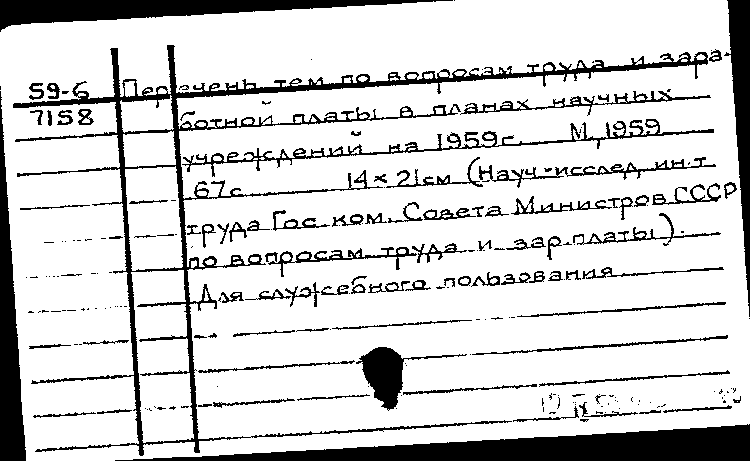 59-6 Перечень тем по вопросам труда и зара-
7158 ботной платы в планах научных
учреждений на 1959г. М, 1959
67с 14×21см (Науч-исслед, ин-т
труда Гос. ком. Совета Министров СССР
по вопросам труда и зар.платы).
Для служебного пользования
12 IX 59